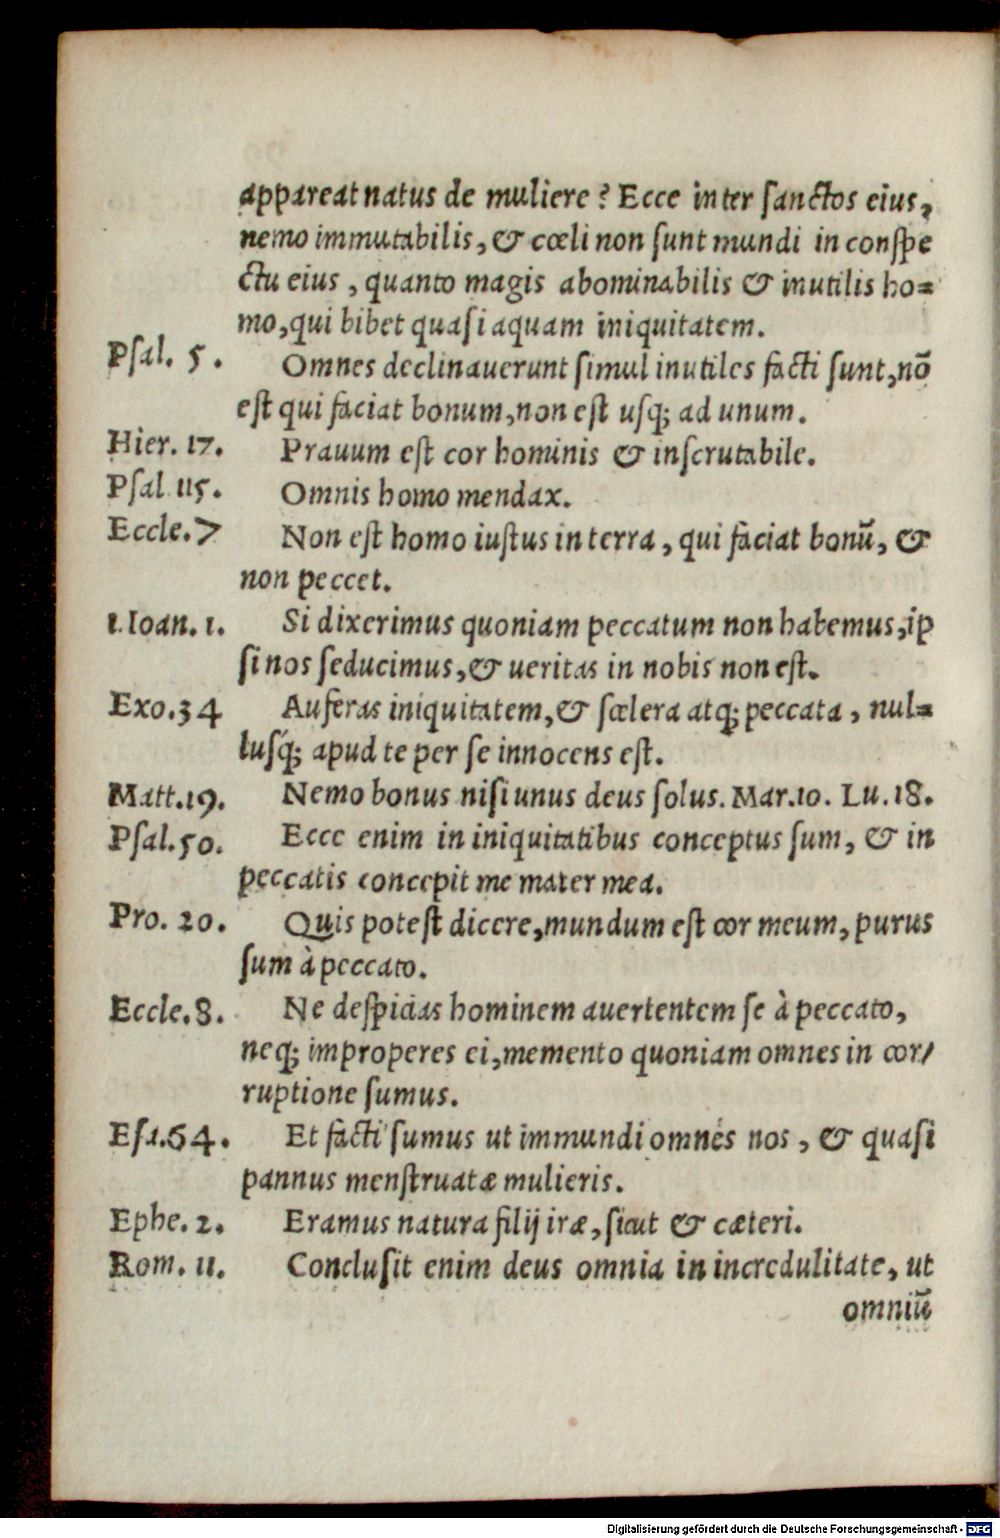 appareat natus de muliere? Ecce inter ſanctos eius,
nemo immutabilis, & cœli non ſunt mundi in conſpe
ctu eius, quanto magis abominabilis & inutilis ho=
mo, qui bibet quaſi aquam iniquitatem.
Pſal. 5. Omnes declinauerunt ſimul inutiles facti ſunt, nō
eſt qui faciat bonum, non eſt uſq; ad unum.
Hier. 17. Prauum eſt cor hominis & inſcrutabile.
Pſal 115. Omnis homo mendax.
Eccle. 7 Non eſt homo iuſtus in terra, qui faciat bonū, &
non peccet.
1. Ioan. 1. Si dixerimus quoniam peccatum non habemus, ip
ſi nos ſeducimus, & ueritas in nobis non eſt.
Exo. 34 Auferas iniquitatem, & ſcelera atq; peccata, nul=
luſq́; apud te per ſe innocens eſt.
Matt. 19. Nemo bonus niſi unus deus ſolus. Mar. 10. Lu. 18.
Pſal. 50. Ecce enim in iniquitatibus conceptus ſum, & in
peccatis concepit me mater mea.
Pro. 20. Quis poteſt dicere, mundum eſt cor meum, purus
ſum à peccato.
Eccle. 8. Ne deſpicias hominem auertentem ſe à peccato,
neq; improperes ei, memento quoniam omnes in cor/
ruptione ſumus.
Eſa. 64. Et facti ſumus ut immundi omnes nos, & quaſi
pannus menſtruatæ mulieris.
Ephe. 2. Eramus natura filij iræ, ſicut & cæteri.
Rom. 11. Concluſit enim deus omnia in incredulitate, ut
omniū
Digitalisierung gefördert durch die Deutsche Forschungsgemeinschaft - DFG